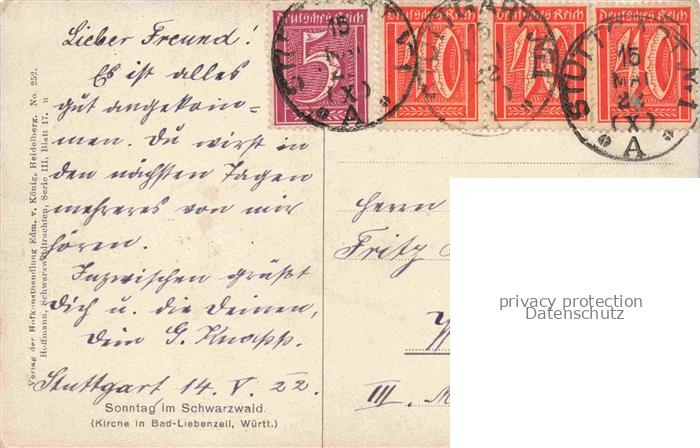 Deutsches Reich
Deutsches Reich
Deutsches Reich
Deutsches Reich
5
10
10
10
STUTTGART
15
MAI
22
(X)
A
Lieber Freund!
Es ist alles
gut angekom-
men. Du wirst in
den nächsten Tagen
mehreres von mir
hören.
Inzwischen grüßt
Dich u. die Deinen,
Dein G. Knapp.
Stuttgart 14. V. 22.
Sonntag im Schwarzwald.
(Kirche in Bad-Liebenzell, Württ.)
Verlag der Hofkunsthandlung Edm. v. König, Heidelberg. No. 252.
Hoffmann, Schwarzwaldtrachten, Serie III, Blatt 17. u
Herrn
Fritz
III.
privacy protection
Datenschutz